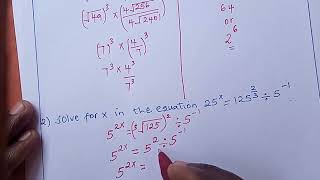 (√49)³ × (4√256 / 4√2401)³
(7)³ × (4/7)³
7³ × 4³/7³
64
or
2⁶
2) Solve for x in the equation 25ˣ = 125^(2/3) ÷ 5⁻¹
5²ˣ = (³√125)² ÷ 5⁻¹
5²ˣ = 5² ÷ 5⁻¹
5²ˣ =